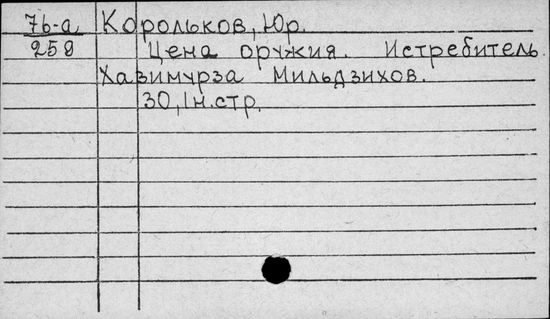 76-а. Корольков, Юр.
259 Цена оружия. Истребитель
Хазимурза Мильдзихов.
30, 1н.стр.